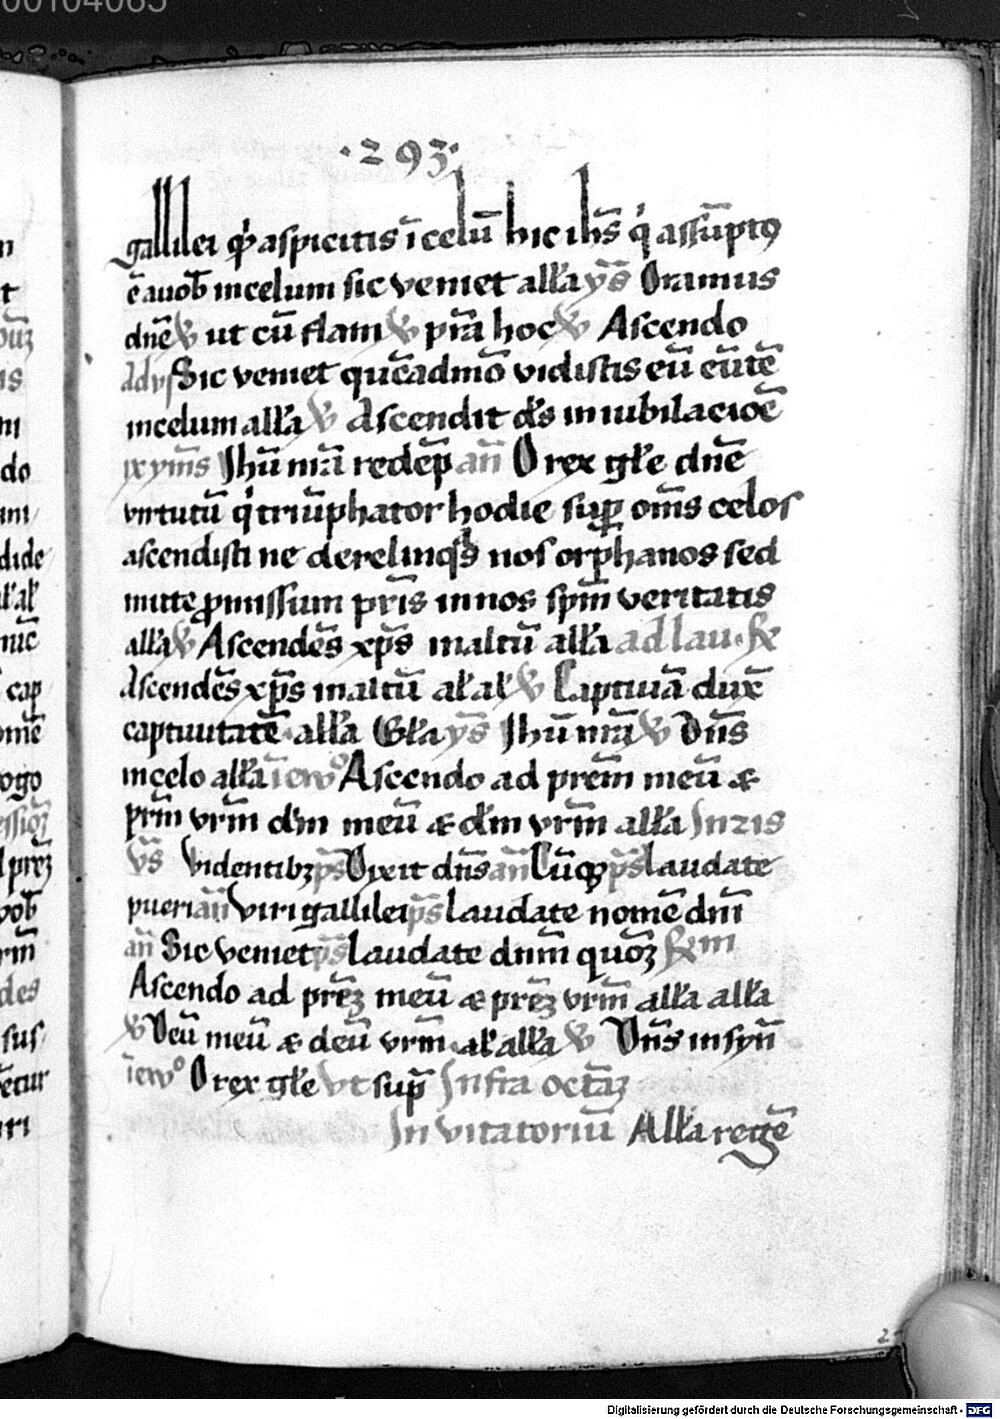 00104085
·293·
gallilei qͥd aspicitis ī celū hic ihs̄ qͥ assūptꝯ
ē a uob̄ in celum sic veniet all̄a ys̄ Oramus
dn̄e ℣ ut cū flam ℣ pr̄a hoc ℣ Ascendo
ad vs Sic veniet quēadmō vidistis eū eūtē
in celum all̄a ℣ Ascendit ds̄ in iubilacōe
ix ym̄s Jhū nr̄a redēp an̄ O rex gl̄e dn̄e
virtutū qͥ triūphator hodie suꝑ om̄s celos
ascendisti ne derelinq̄s nos orphanos sed
mitte ꝓmissum pr̄is in nos spm̄ veritatis
all̄a ℣ Ascendēs xp̄s in altū all̄a ad lau· ℟
Ascendēs xp̄s in altū al̄ al̄ ℣ Captiuā duxē
captiuitatē· all̄a Gl̄a ys̄ Jhū nr̄a ℣ Dn̄s
in celo all̄a in̄ ew͛o Ascendo ad prem̄ meū ⁊
prm̄ vrm̄ dm̄ meū ⁊ dm̄ vrm̄ all̄a In 2is
vs̄ Videntibꝫ ps̄ Dixit dn̄s an̄ Cūqꝫ ps̄ laudate
pueri an̄ Viri gallilei ps̄ laudate nomē dn̄i
an̄ Sic veniet ps̄ laudate dnm̄ quoꝫ ℟m
Ascendo ad prēꝫ meū ⁊ prēꝫ vrm̄ all̄a all̄a
℣ Deū meū ⁊ deū vrm̄ al̄ all̄a ℣ Dn̄s in syn̄
in̄ ew͛o O rex gl̄e vt sup̄ Infra octāꝫ
In vitatoriū All̄a regē
Digitalisierung gefördert durch die Deutsche Forschungsgemeinschaft - DFG